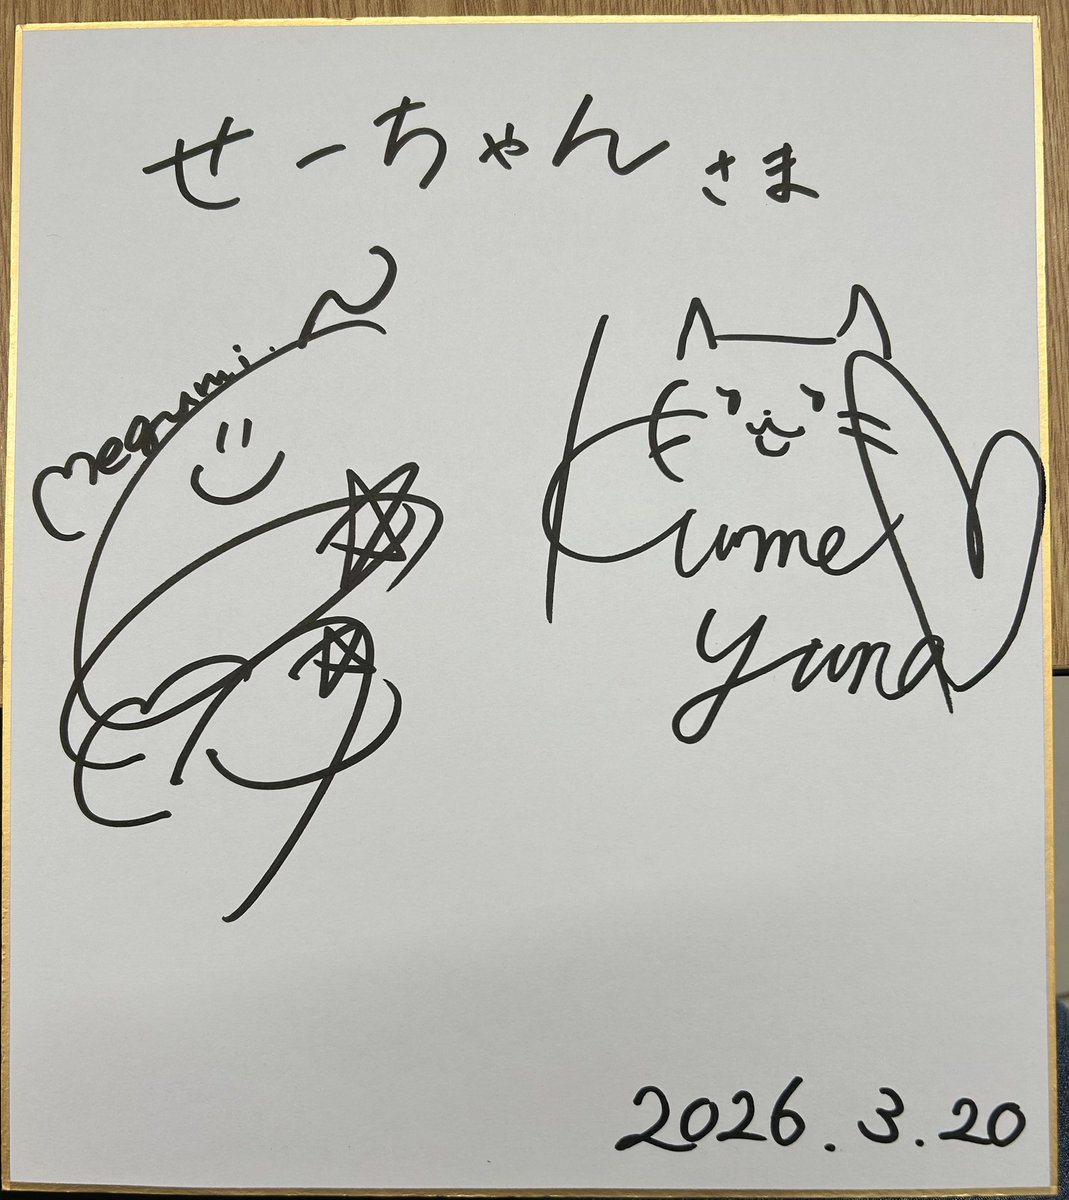 せーちゃんさま
megumi.
Kume
yuna
2026.3.20